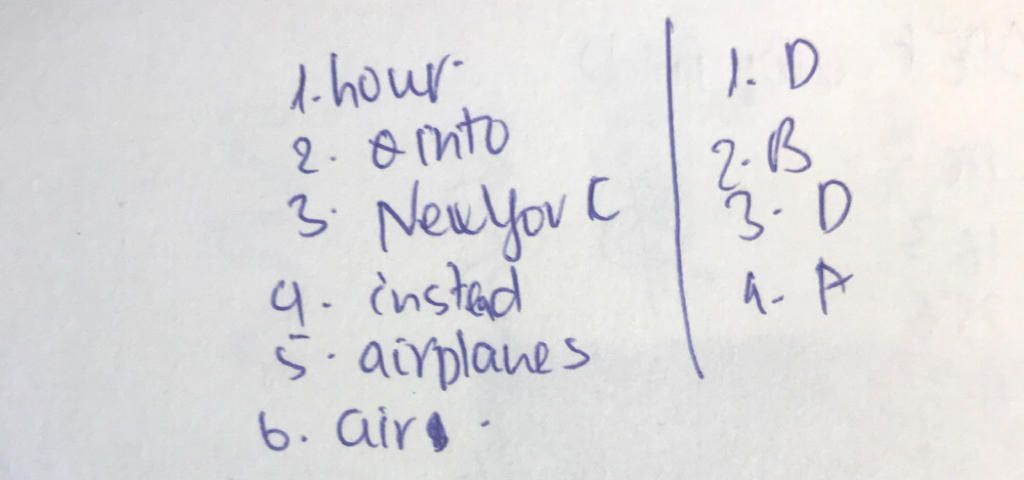 1. hour
2. into
3. NewYorC
4. insted
5. airplanes
6. air
1. D
2. B
3. D
4. A